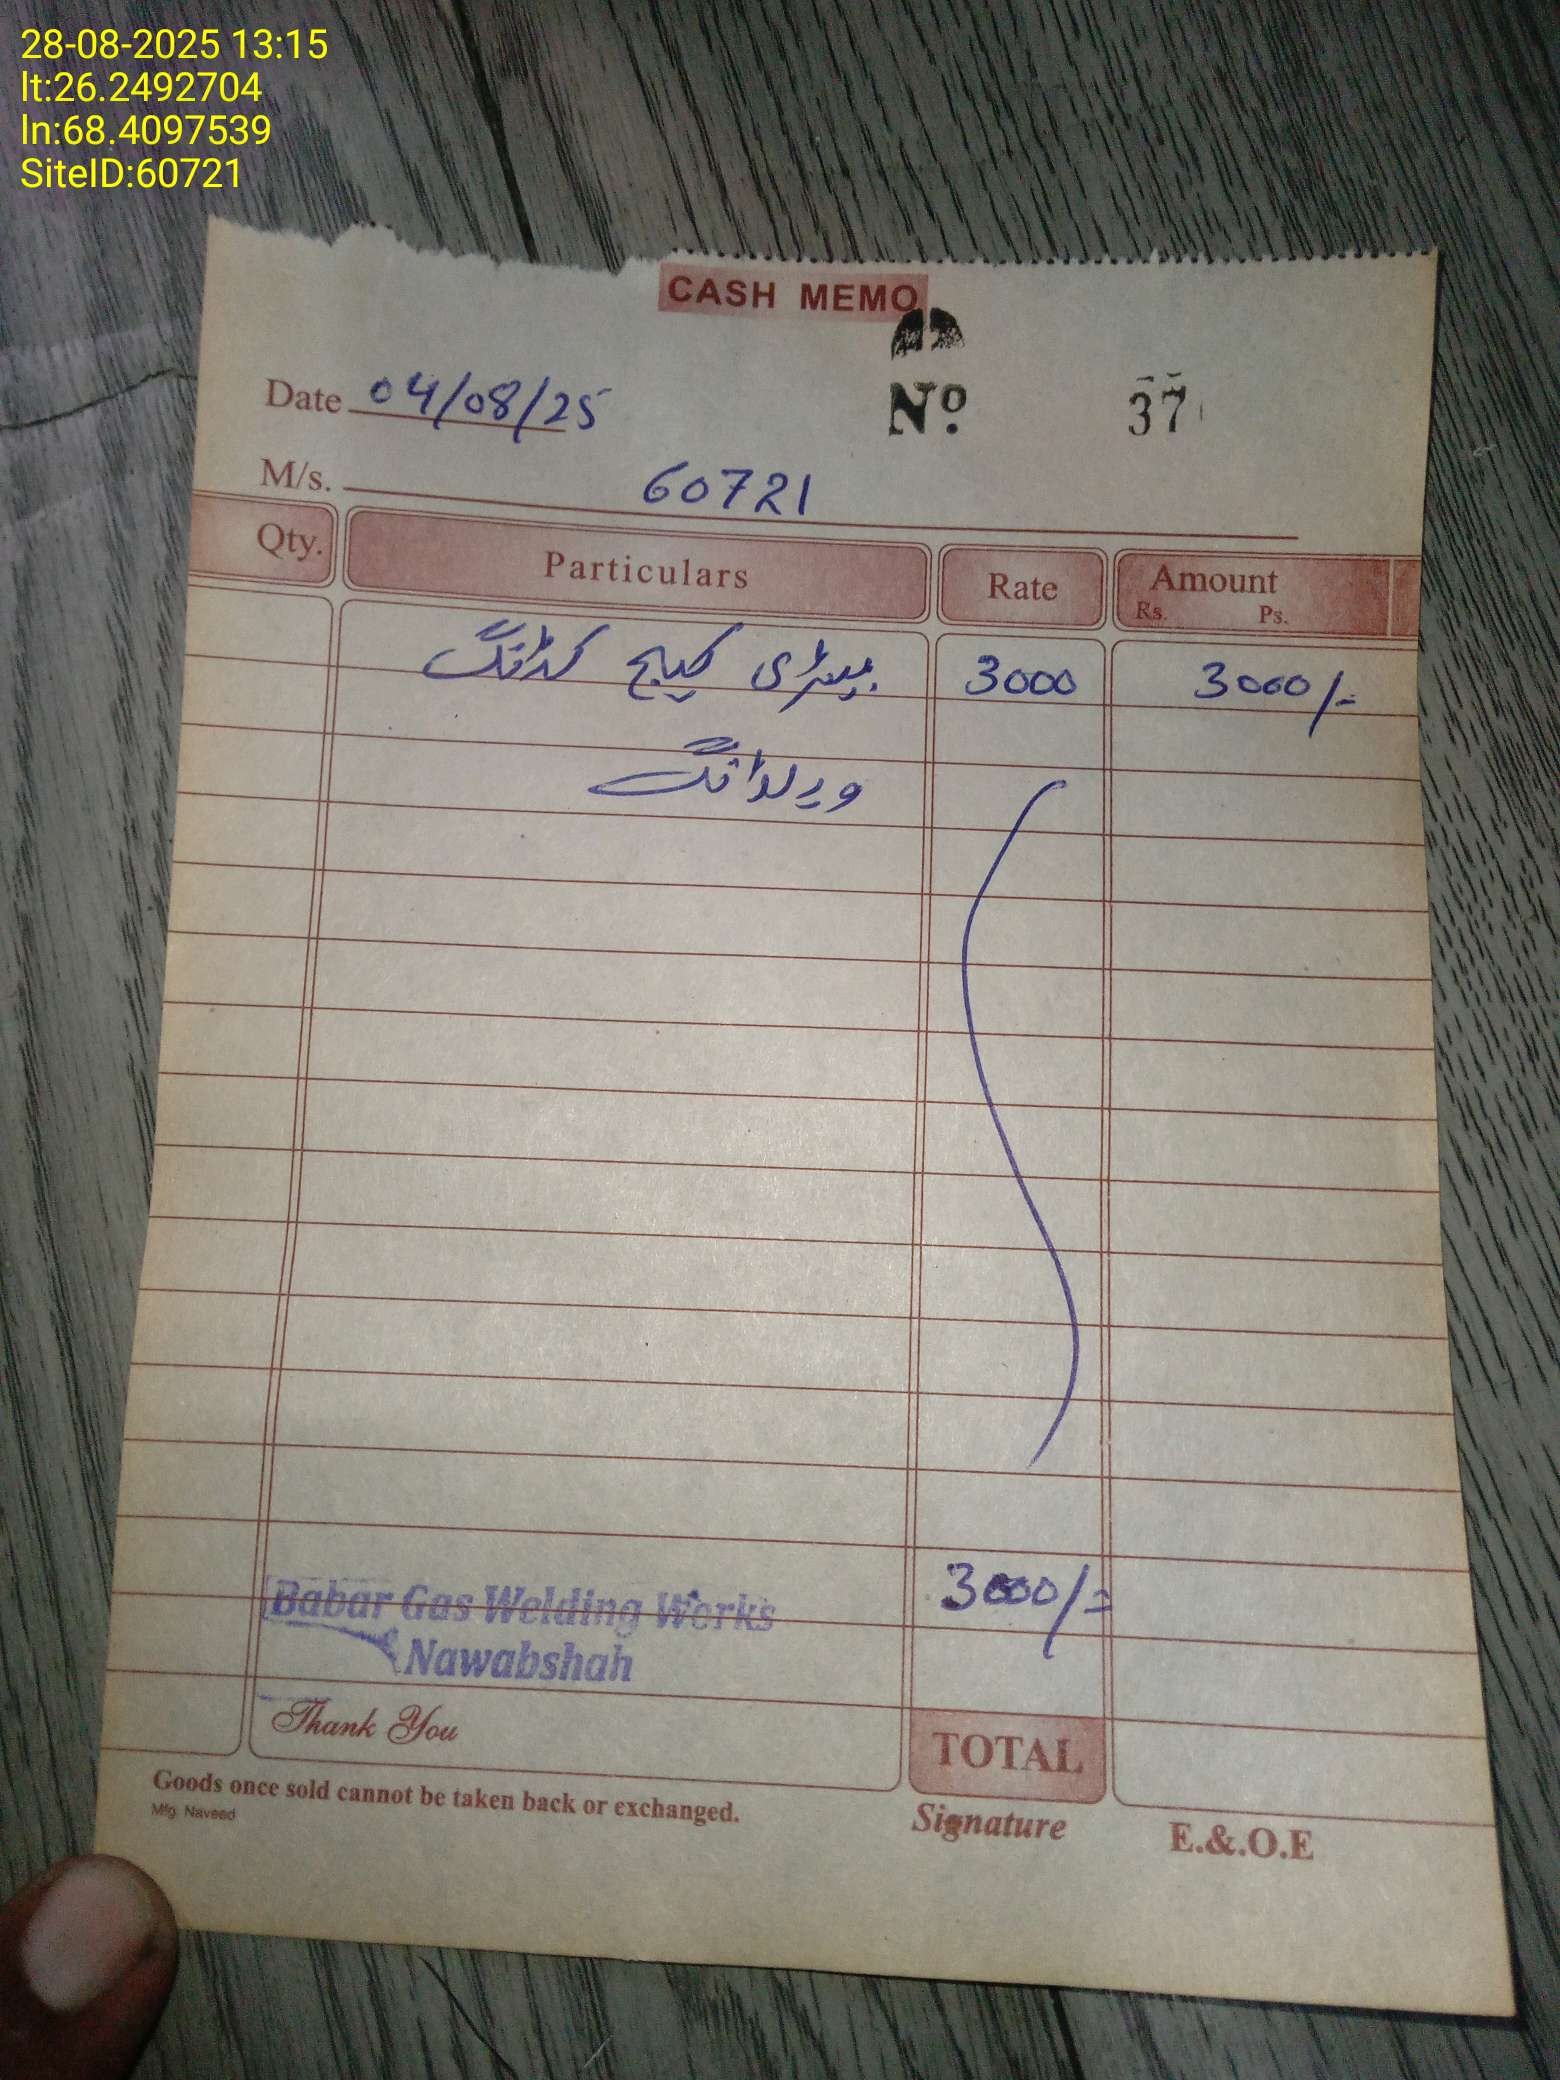 28-08-2025 13:15
lt:26.2492704
ln:68.4097539
SiteID:60721
CASH MEMO
Date 04/08/25
No. 37
M/s. 60721
Qty. Particulars Rate Amount
Rs. Ps.
بیٹری کیج کڈانگ 3000 3000/=
ویلڈانگ
3000/=
Babar Gas Welding Works
Nawabshah
Thank You
TOTAL
Goods once sold cannot be taken back or exchanged.
Mfg. Naveed
Signature
E.&.O.E